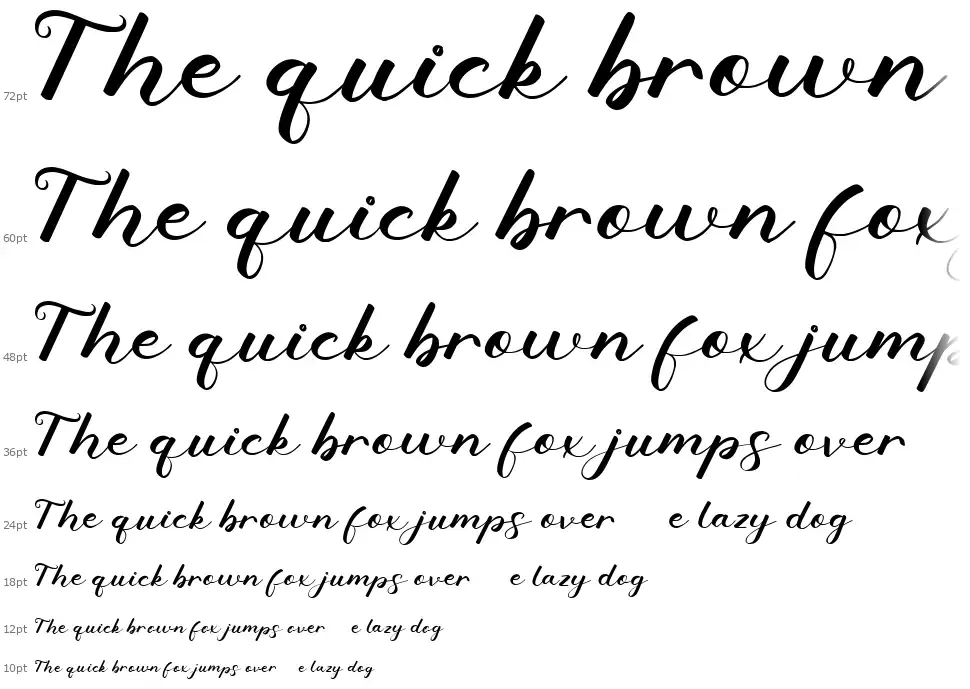 72pt The quick brown
60pt The quick brown fox
48pt The quick brown fox jump
36pt The quick brown fox jumps over
24pt The quick brown fox jumps over e lazy dog
18pt The quick brown fox jumps over e lazy dog
12pt The quick brown fox jumps over e lazy dog
10pt The quick brown fox jumps over e lazy dog